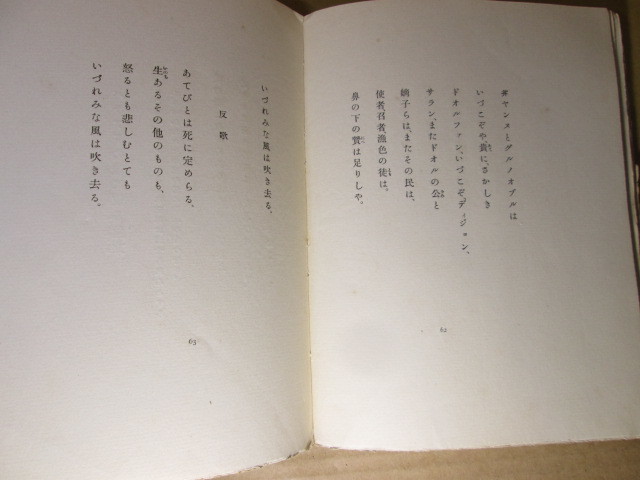 ヴヤンヌとグルノオブルは
いづこぞや、貴に、さかしき
ドオルファン、いづこぞディジョン、
サラン、またドオルの公と
嫡子らは、またその民は、
使者、召者、漁色の徒は。
鼻の下の賞は足りしや。
62
いづれみな風は吹き去る。
反歌
あてびとは死に定めらる、
生あるその他のものも、
怒るとも悲しむとても
いづれみな風は吹き去る。
63